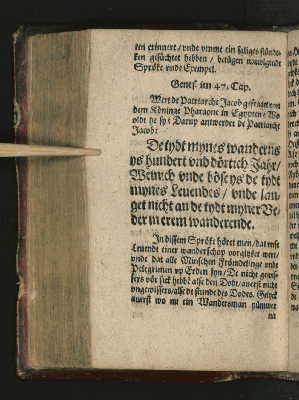 ken erinnert / vnde vmme ein saliges stünde-
ken gesüchtet hebben / betügen nauolgende
Spröke vnde Exempel.
Genes. im 47. Cap.
Wert de Patriarche Jacob gefraget van
dem Köninge Pharaone in Egypten / Wo
oldt he sy? Darup antwerdet de Patriarche
Jacob:
De tydt mynes wanderns
ys hundert vnd dörtich Jahr /
Wenich vnde böse ys de tydt
mynes Leuendes / vnde lan-
get nicht an de tydt myner Ve-
der in erem wanderende.
In dissem Spröke höret men / dat vnse
Leuendt einer wanderschop vorglyket wert /
vnde dat alle Minschen Frömdelinge vnde
Pelegrimen vp Erden syn / De nicht gewis-
sers vör sick hebbē alse den Dodt / auerst nicht
vngewissers / alse de stunde des Dodes. Gelyck
auerst wo nu ein Wandersman nümmer
na